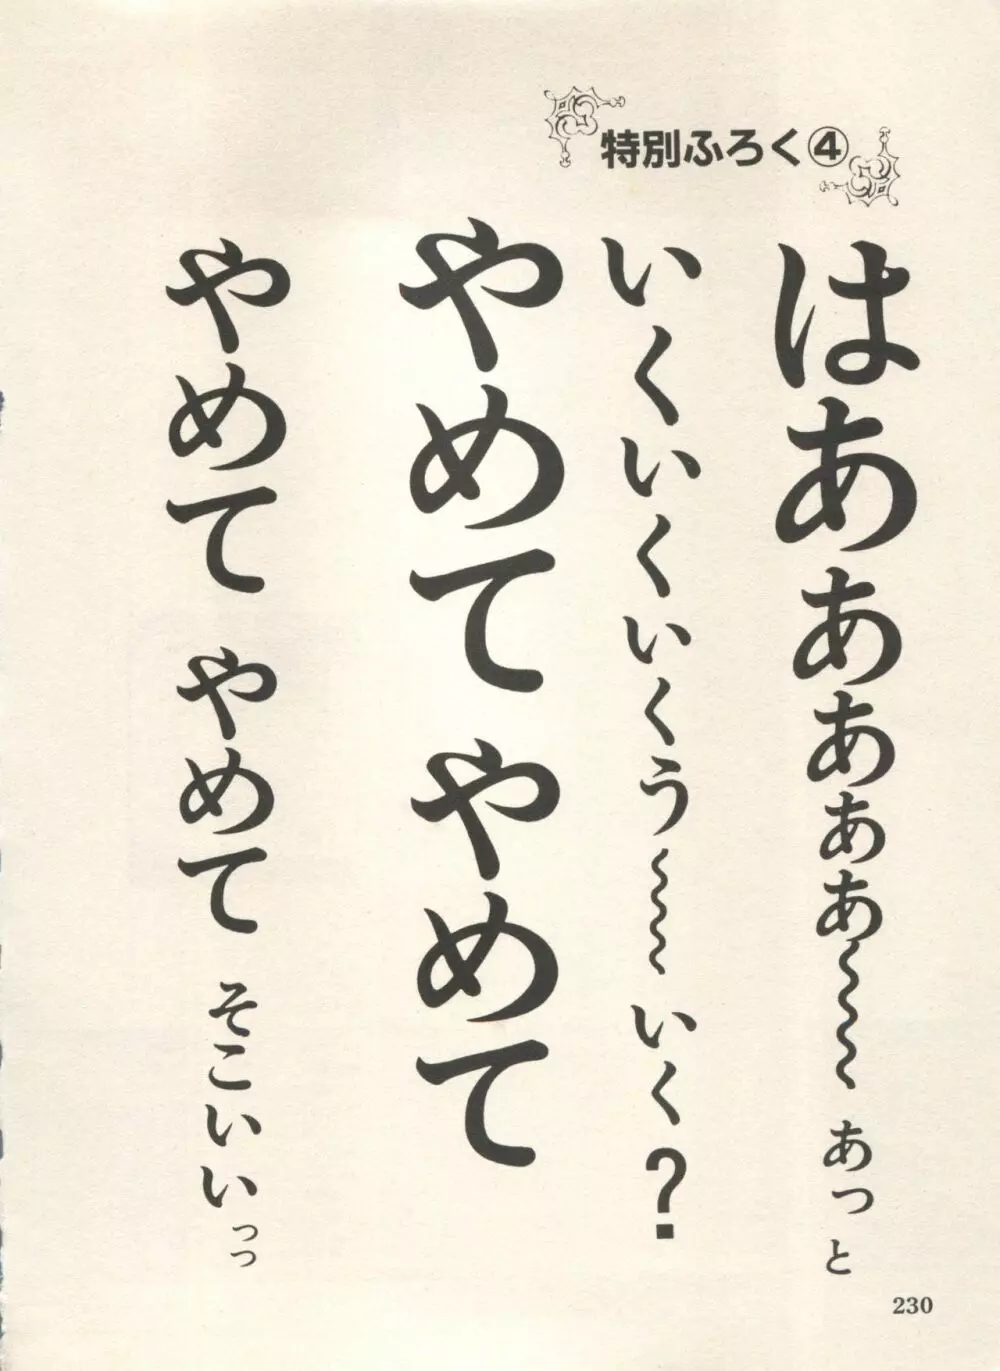 特別ふろく④
はあああああ～～～あっと
いくいくいくう～～いく?
やめてやめて
やめてやめてそこいいっっ
230